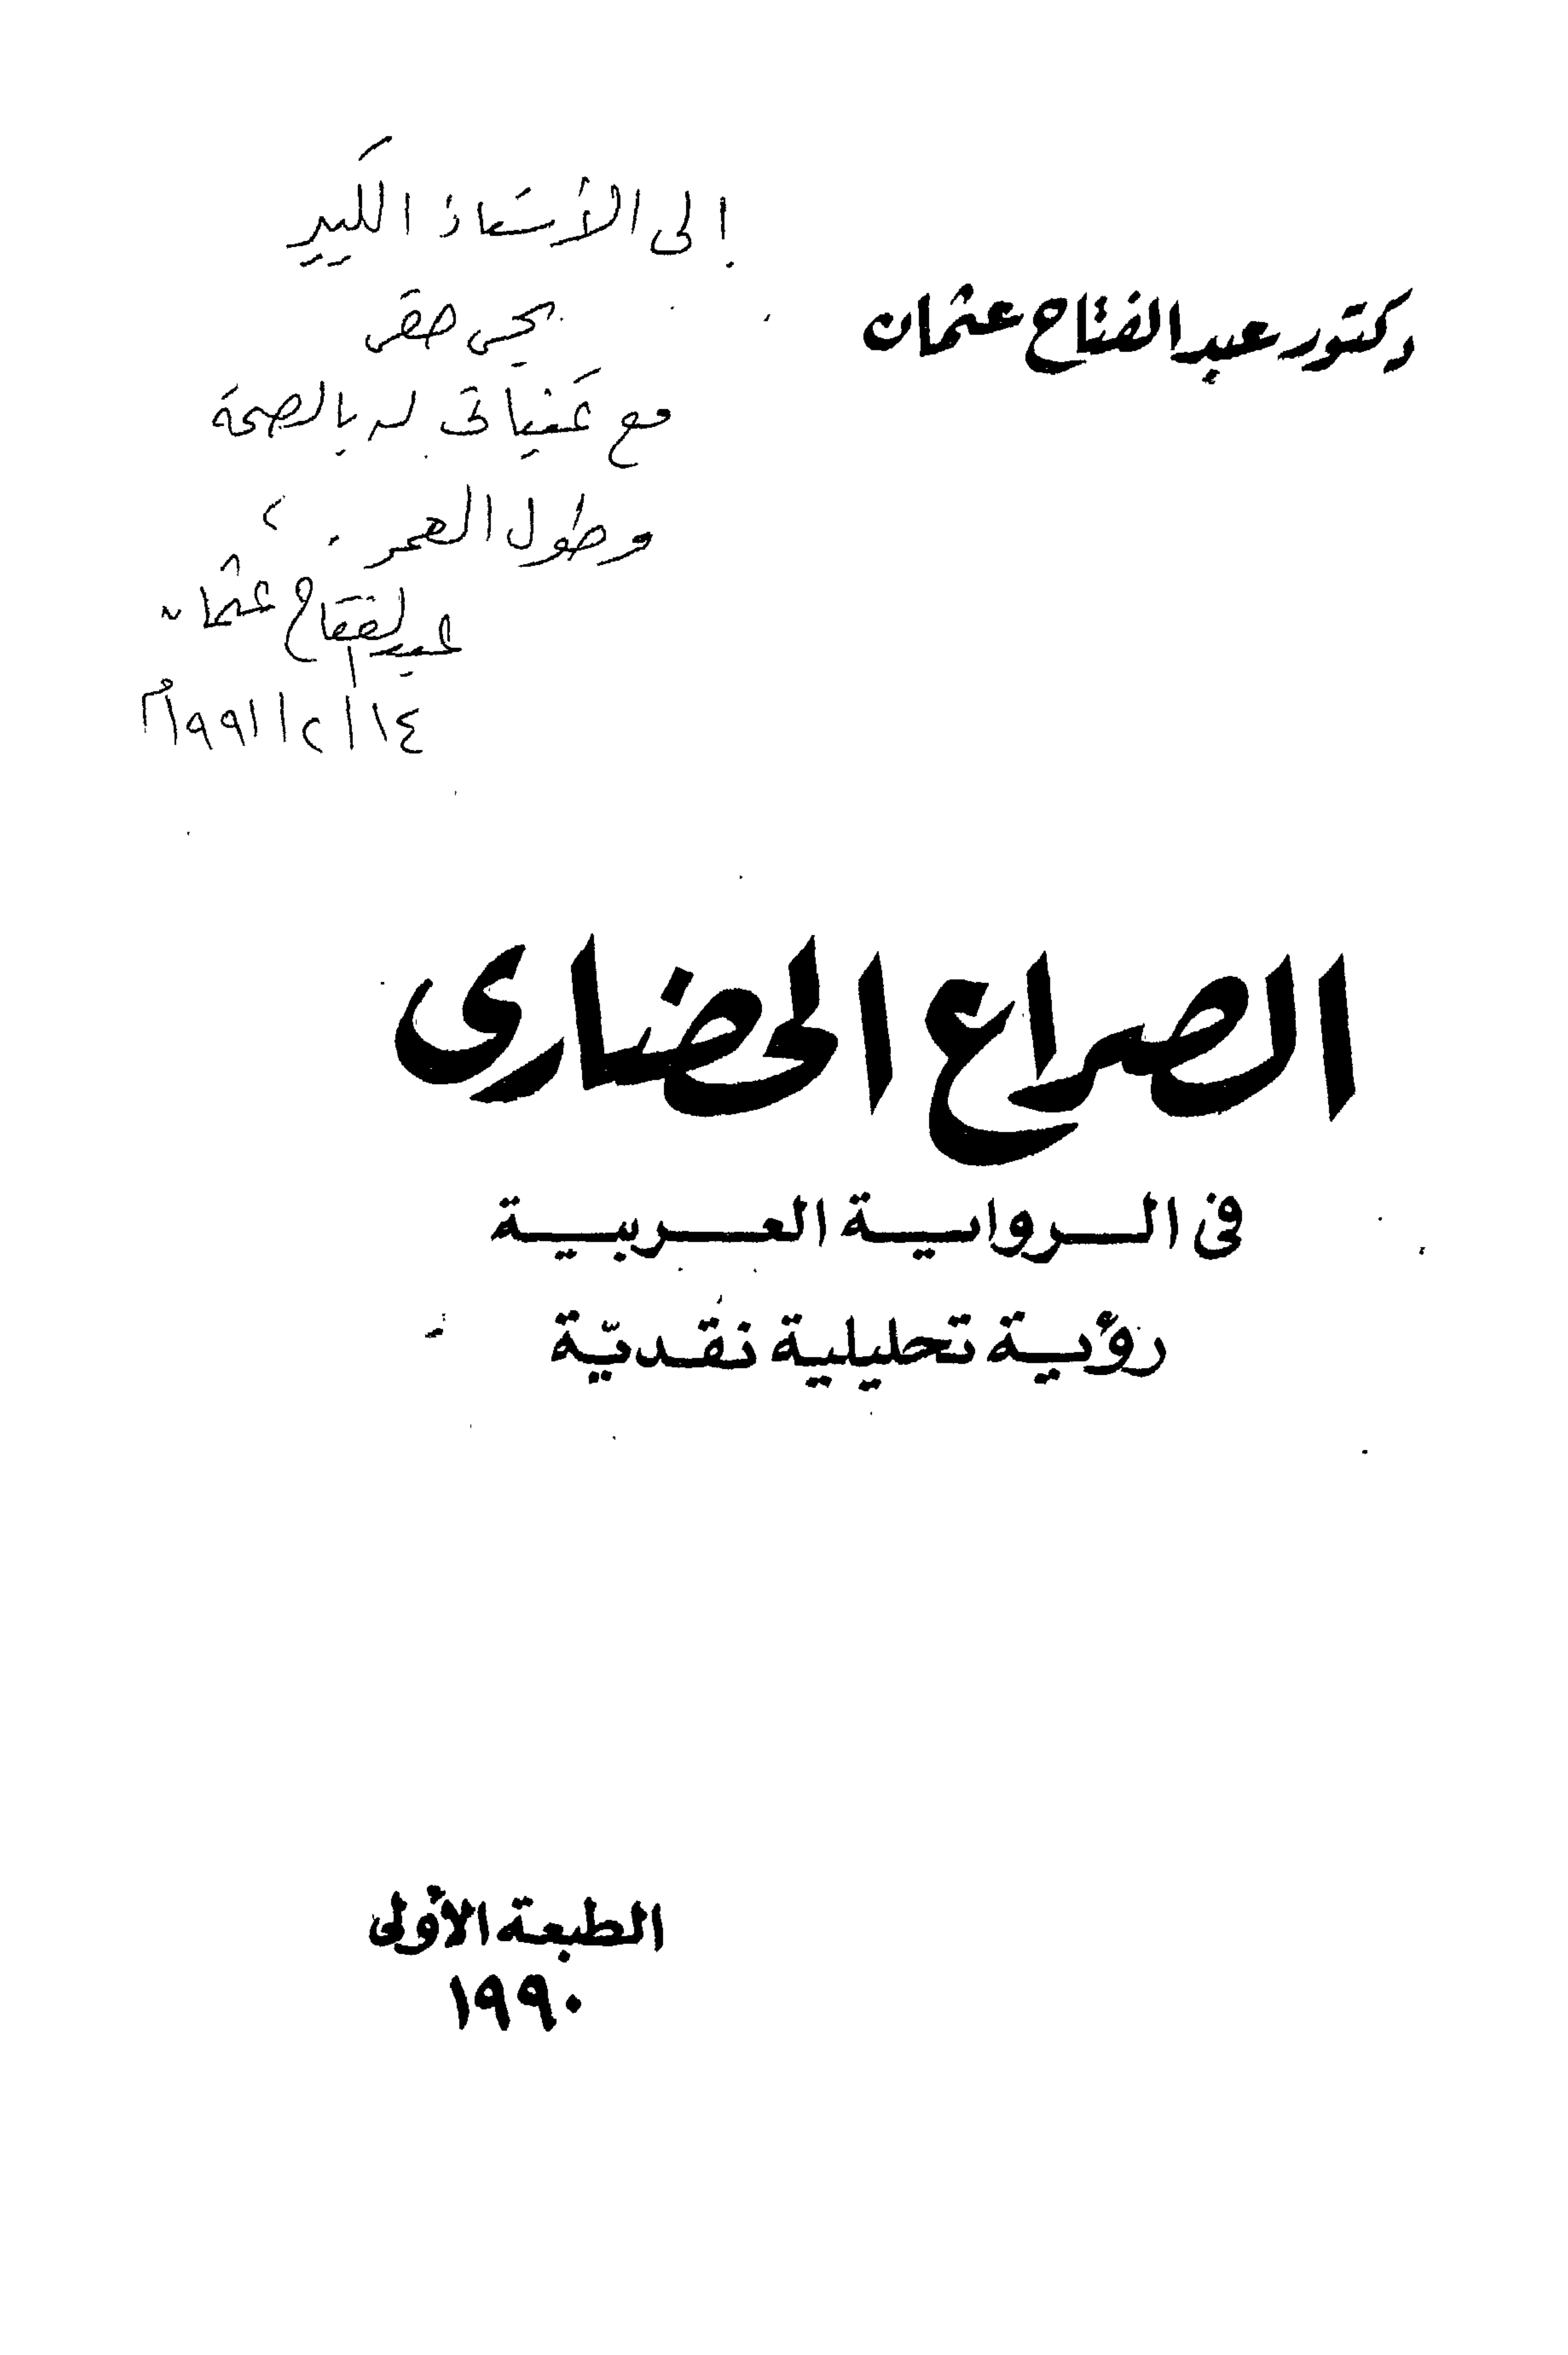 إلى الأستاذ الكبير
يحيى حقى
مع تمنياتى له بالصحة
وطول العمر .
عبد الفتاح عثمان
١٤/٢/١٩٩١م
دكتور عبد الفتاح عثمان
الصراع الحضارى
فى الرواية العربية
رؤية تحليلية نقديّة
الطبعة الأولى
١٩٩٠